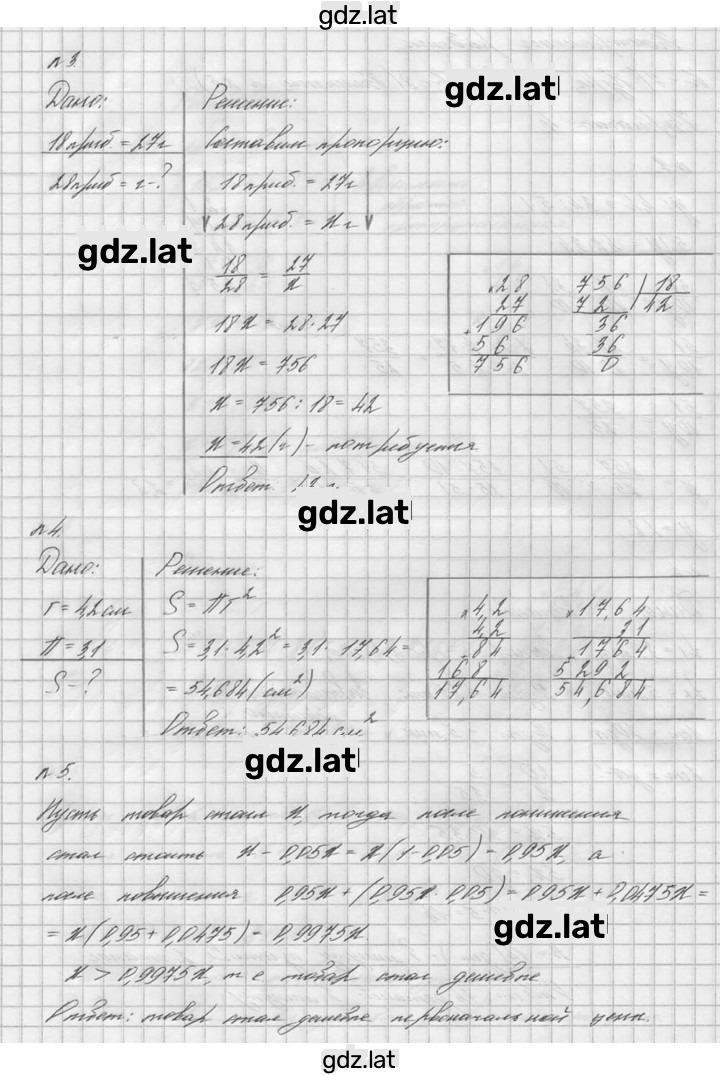 gdz.lat
№3.
Дано:
18 приб. = 27 г
28 приб. = г - ?
Решение:
gdz.lat
Составим пропорцию:
18 приб. = 27 г
28 приб. = x г
gdz.lat
18/28 = 27/x
18x = 28·27
18x = 756
x = 756 : 18 = 42
x = 42 (г) - потребуется
Ответ.
× 28
27
+ 196
56
756
756 | 18
72 | 42
36
36
0
gdz.lat
№4.
Дано:
r = 4,2 см
π = 3,1
S - ?
Решение:
S = πr²
S = 3,1 · 4,2² = 3,1 · 17,64 =
= 54,684 (см²)
Ответ: 54,684 см²
× 4,2
4,2
+ 84
168
17,64
× 17,64
3,1
+ 1764
5292
54,684
gdz.lat
№5.
Пусть товар стоил x, тогда после понижения
стал стоить x - 0,05x = x(1-0,05) = 0,95x, а
после повышения 0,95x + (0,95x · 0,05) = 0,95x + 0,0475x =
= x(0,95 + 0,0475) = 0,9975x.
gdz.lat
x > 0,9975x, т.е. товар стал дешевле
Ответ: товар стал дешевле первоначальной цены.
gdz.lat